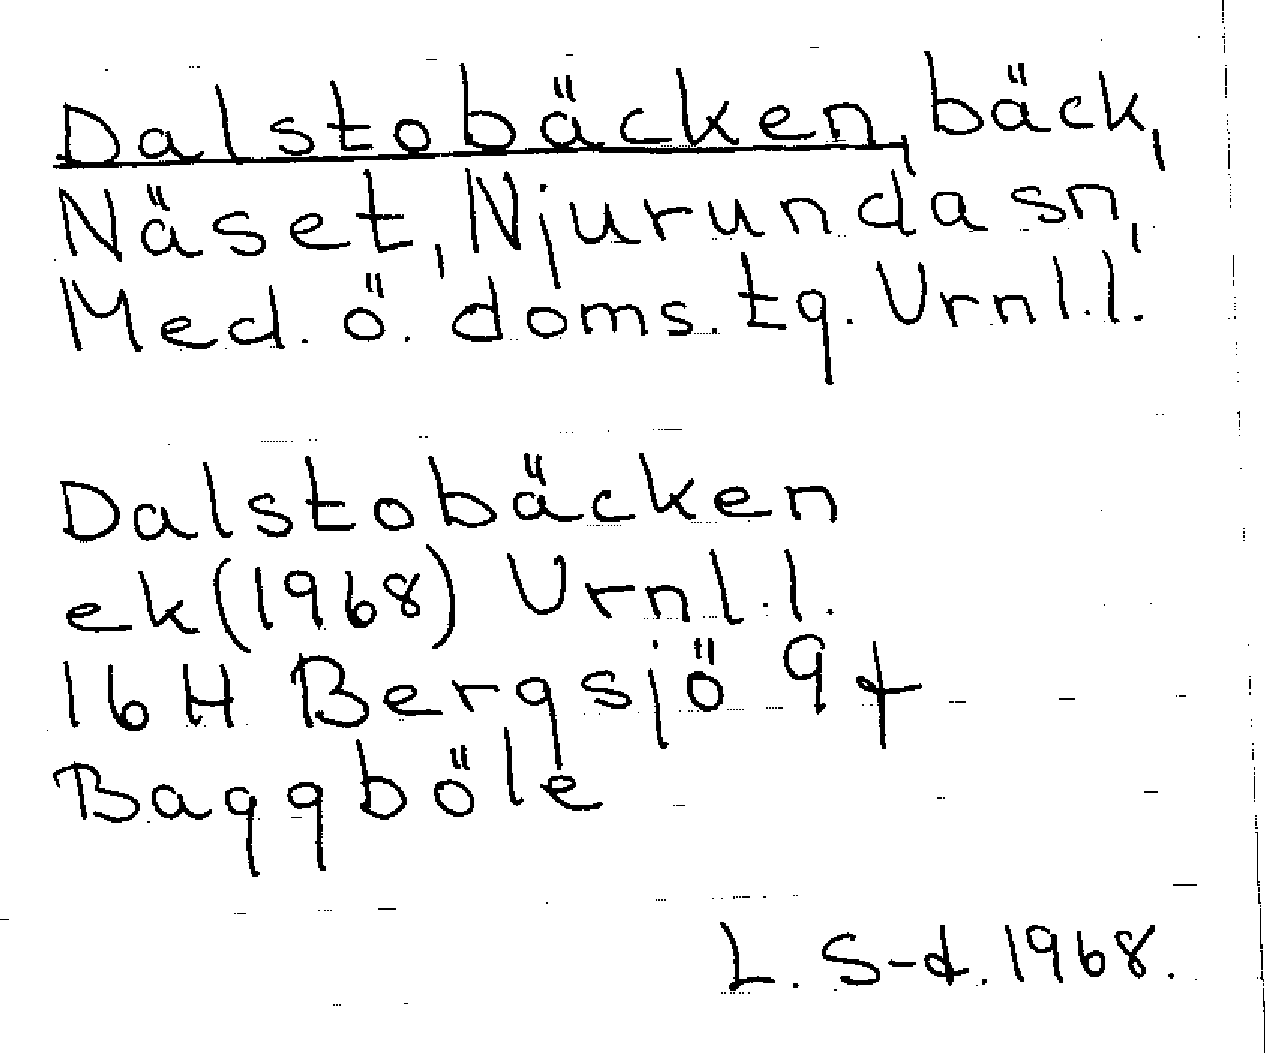 Dalstobäcken, bäck,
Näset, Njurunda sn,
Med. ö. doms. tg. Vrnl.l.
Dalstobäcken
ek (1968) Vrnl.l.
16H Bergsjö 9 f
Baggböle
L. S-d. 1968.